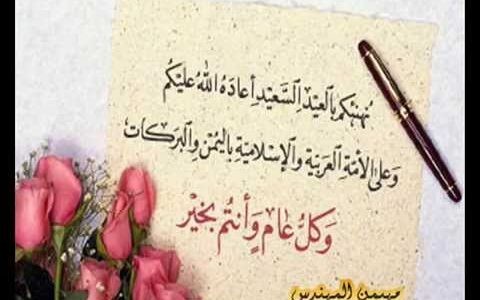 نُهنِّئكُم بِالعِيْدِ السَّعِيْدِ أعَادَهُ اللّٰهُ عَلَيْكُم
وَعَلىٰ الأُمَّةِ العَرَبِيَّةِ وَالإسْلَامِيَّةِ بِاليُمْنِ وَالبَرَكَات
وَكُلُّ عَامٍ وَأَنتُمْ بِخَيْر
المهندس